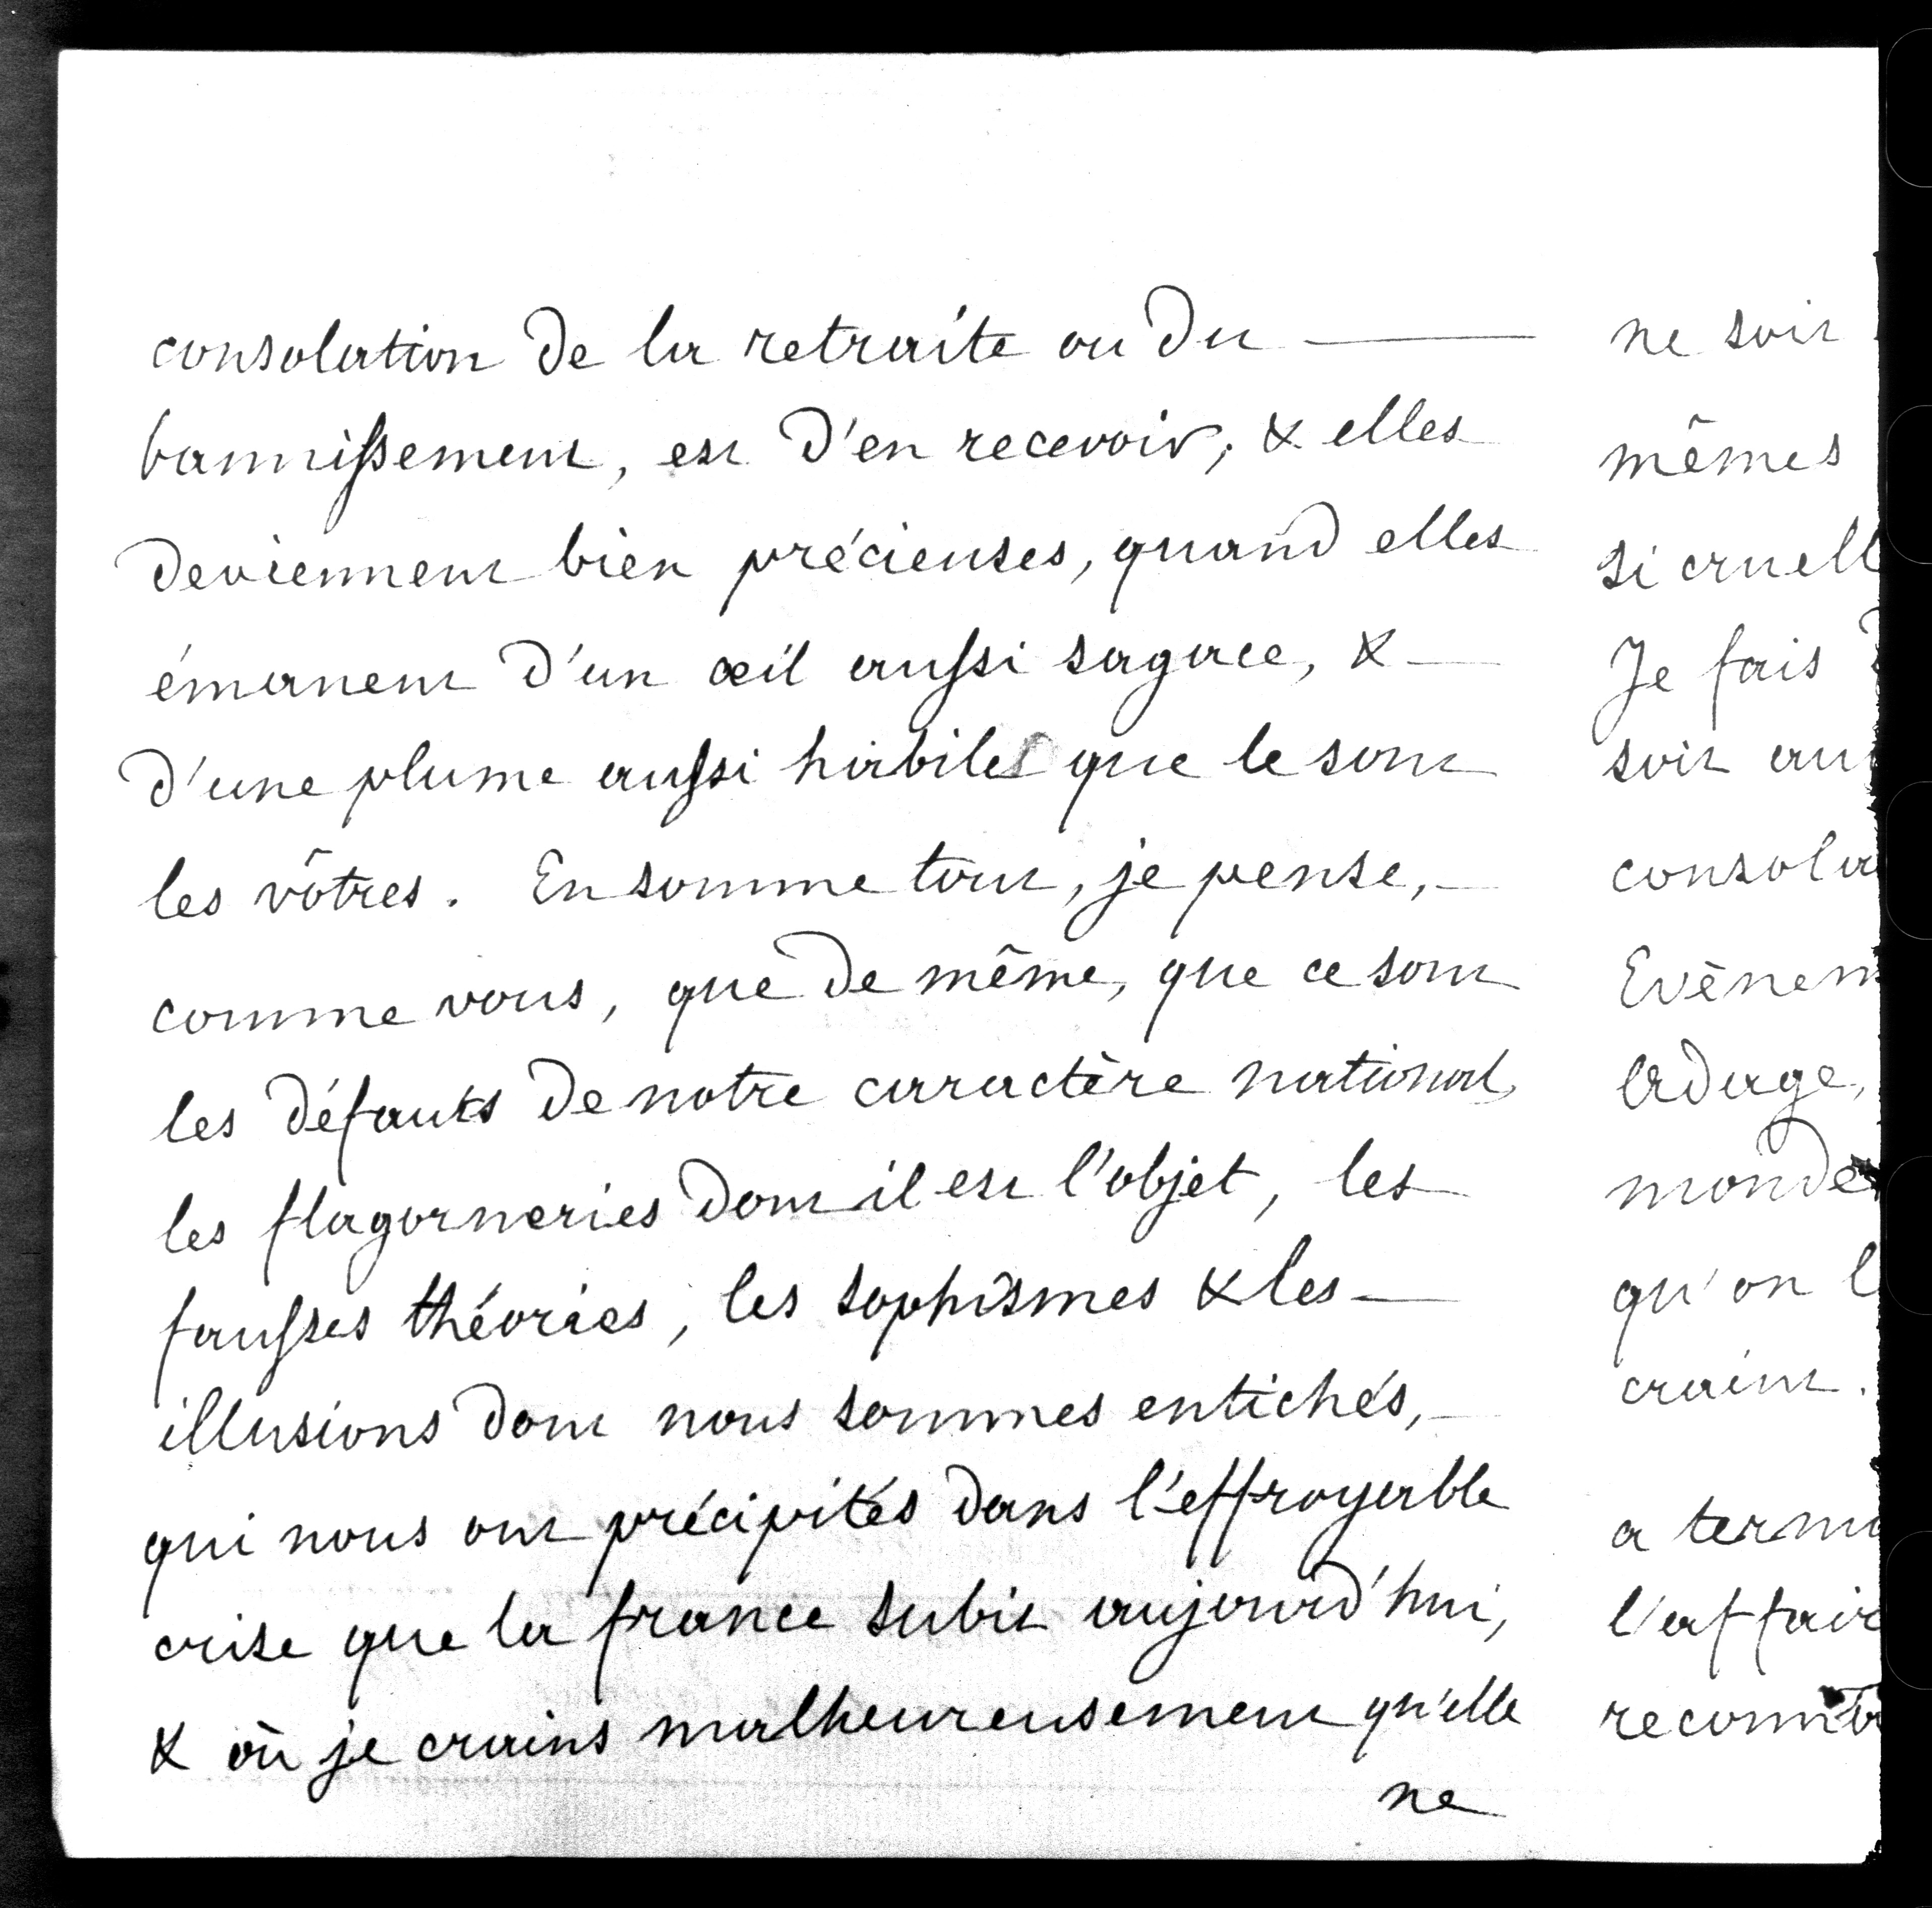 consolation de la retraite ou du —
bannissement, est d'en recevoir; & elles
deviennent bien précieuses, quand elles
émanent d'un œil aussi sagace, & —
d'une plume aussi habile que le sont
les vôtres. En somme tout, je pense, —
comme vous, que de même, que ce sont
les défauts de notre caractère national,
les flagorneries dont il est l'objet, les
fausses théories, les sophismes & les —
illusions dont nous sommes entichés, —
qui nous ont précipités dans l'effroyable
crise que la france subit aujourd'hui,
& où je crains malheureusement qu'elle
ne
ne soit
mêmes
si cruell
Je fais
soit au
consola
Evènem
adage,
monde
qu'on l
craint.
a termi
l'affair